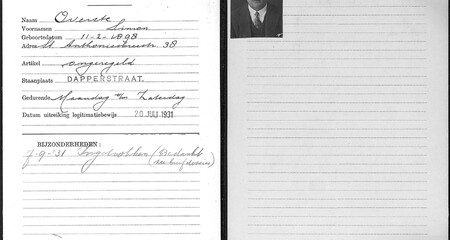 Naam Overste
Voornamen Simon
Geboortedatum 11-2-1898
Adres St. Anthoniesbreestr. 38
Artikel ongeregeld
Staanplaats DAPPERSTRAAT.
Gedurende Maandag t/m Zaterdag
Datum uitreiking legitimatiebewijs 20 JULI 1931
BIJZONDERHEDEN:
7-9-'31 Ingetrokken (Bedankt